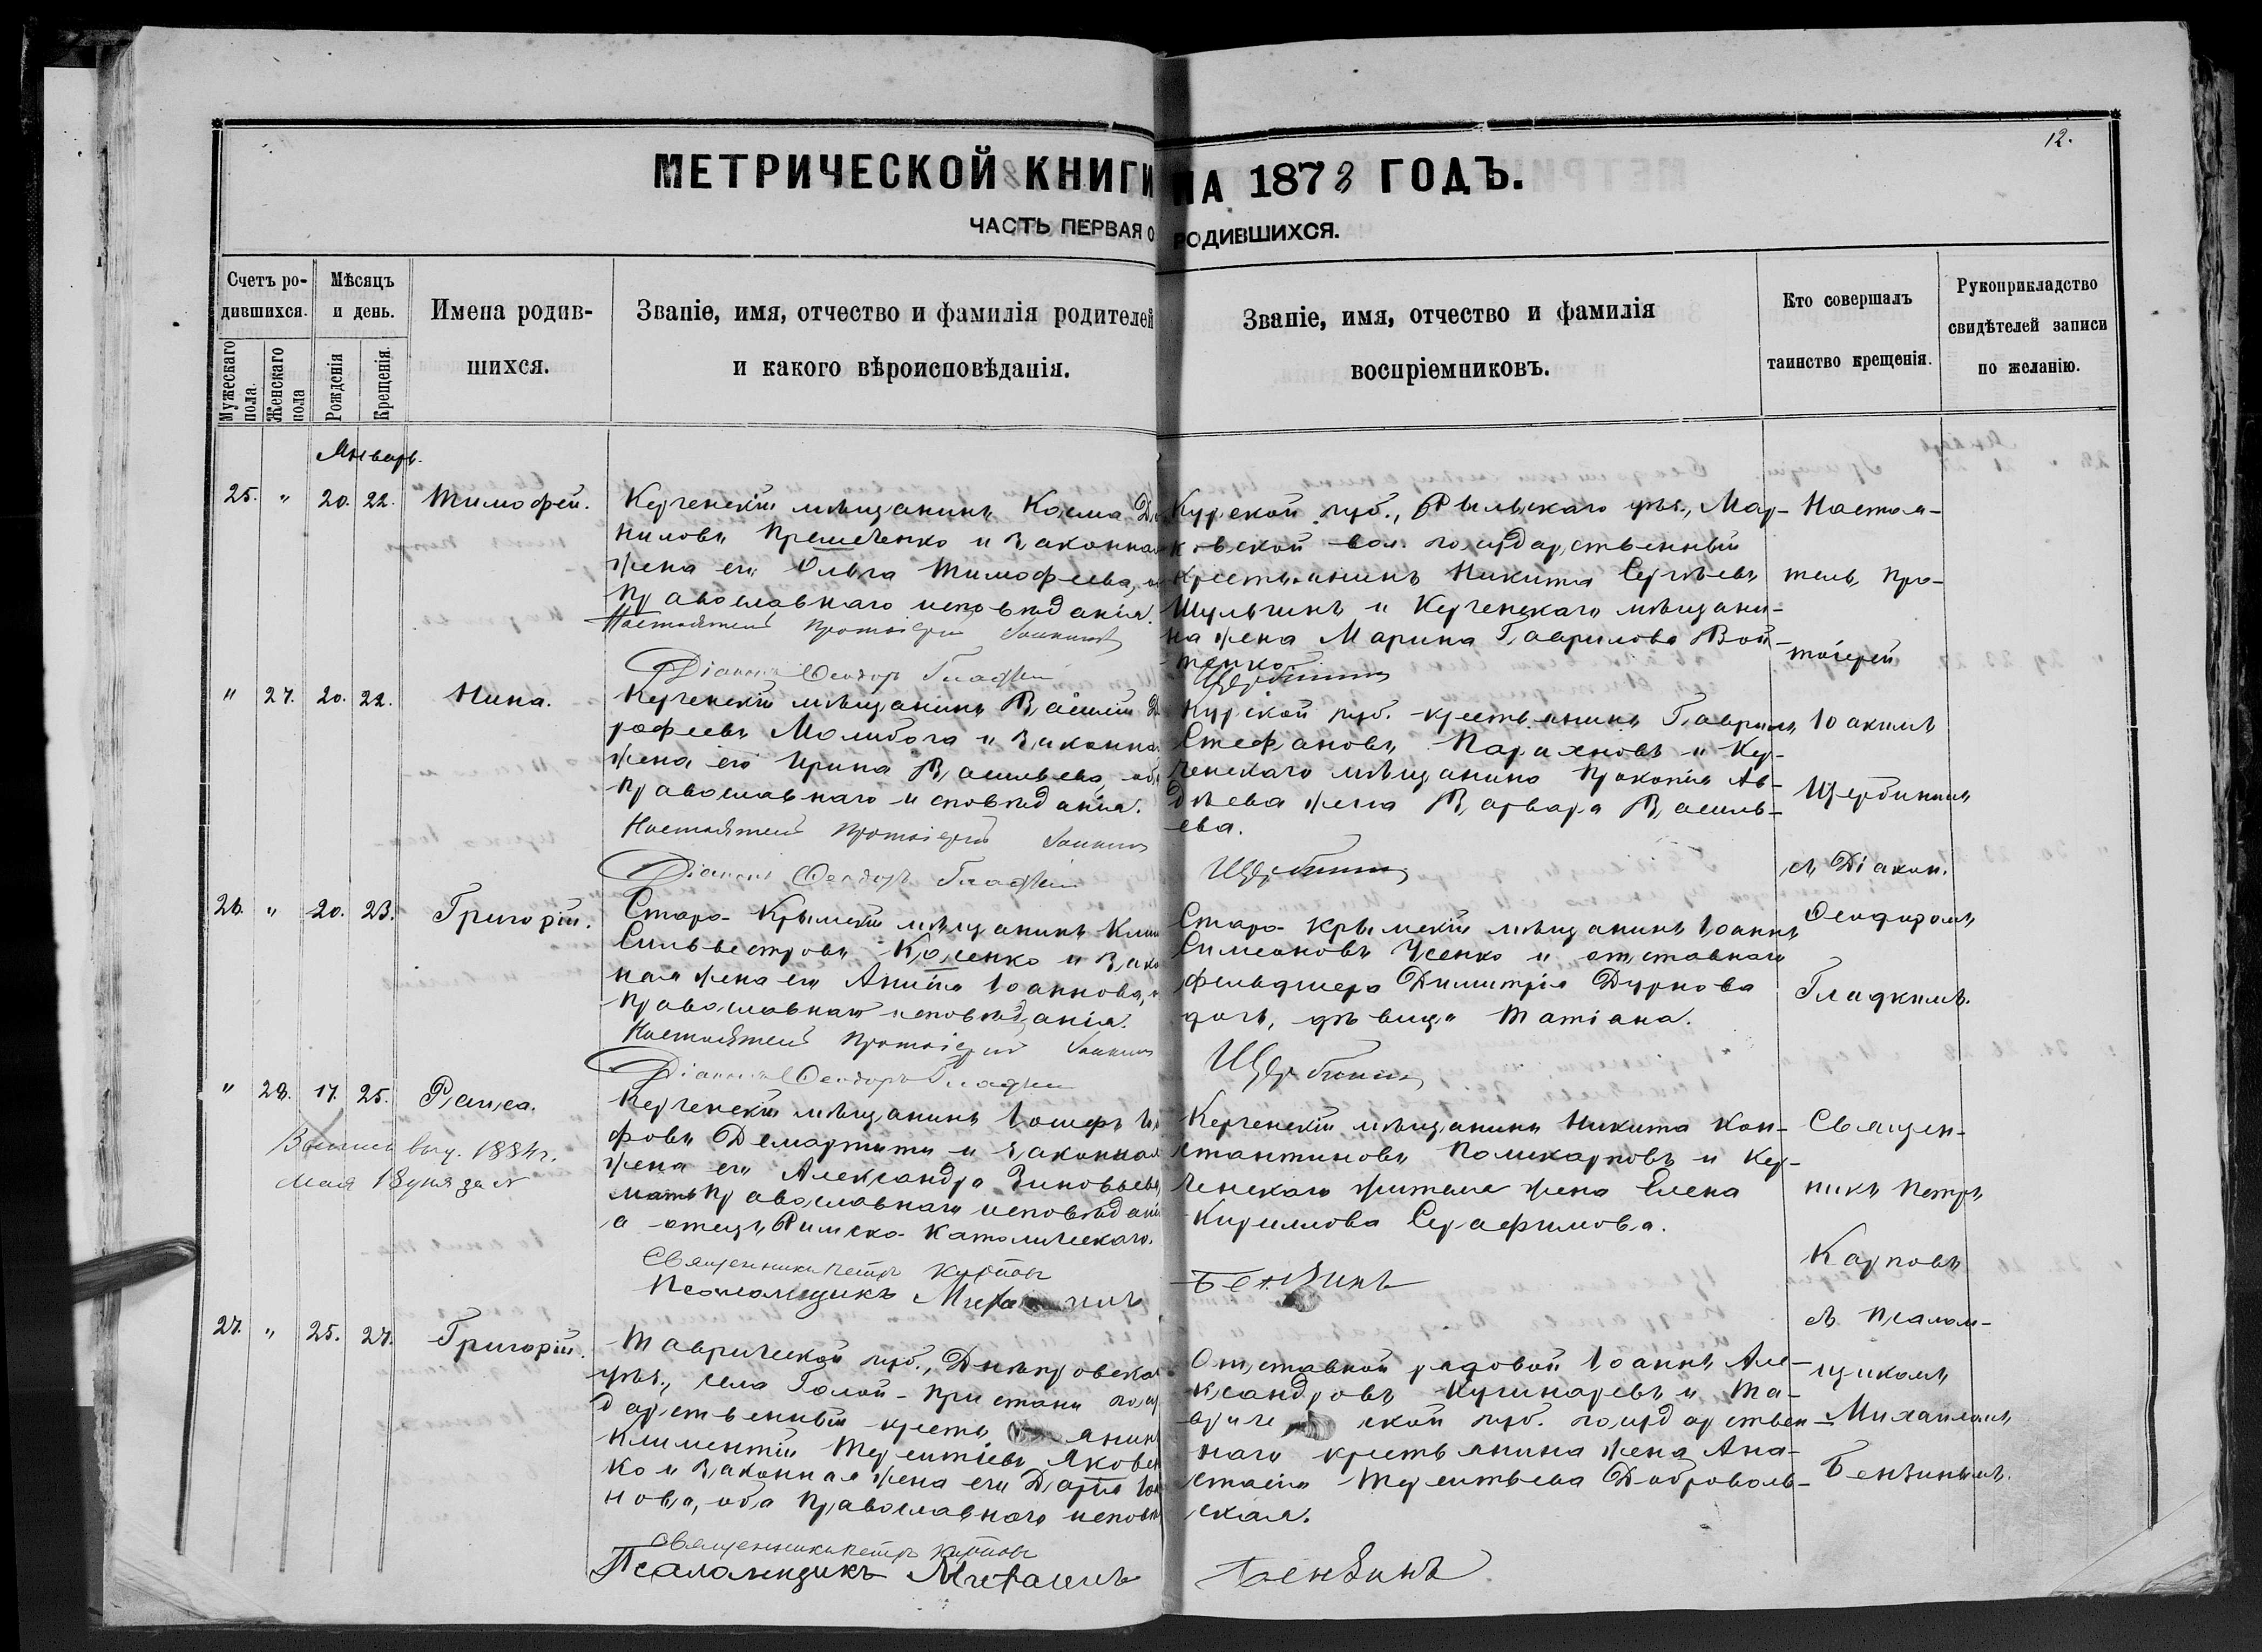 12.
МЕТРИЧЕСКОЙ КНИГИ НА 1878 ГОДЪ.
ЧАСТЬ ПЕРВАЯ О РОДИВШИХСЯ.
Счетъ ро-
дившихся.
Мужескаго
пола.
Женскаго
пола
Мѣсяцъ
и день.
Рожденія
Крещенія.
Имена родив-
шихся.
Званіе, имя, отчество и фамилія родителей
и какого вѣроисповѣданія.
Званіе, имя, отчество и фамилія
воспріемниковъ.
Кто совершалъ
таинство крещенія.
Рукоприкладство
свидѣтелей записи
по желанію.
Январь.
25. " 20. 22. Тимофей.
Керченскій мѣщанинъ Косма Да
ниловъ и законная
жена его Ольга Тимофеева,
Православнаго исповѣданія.
Настоятель Протоіерей Іоакимъ
Діаконъ Ѳеодоръ Гладкій
Курской губ., Рыльскаго уѣз., Мар-
ковской вол. государственный
крестьянинъ Никита Сергѣевъ
Шульгинъ и Керченскаго мѣщани-
на жена Марина Гаврилова Вой-
тенко.
Щербининъ
Настоя-
тель Про-
тоіерей
" 27. 20. 22. Нина.
Керченскій мѣщанинъ Василій До
рофеевъ Молибога и законная
жена его Ирина Васильева, оба
Православнаго исповѣданія.
Настоятель Протоіерей Іоакимъ
Діаконъ Ѳеодоръ Гладкій
Курской губ. крестьянинъ Гавріилъ
Стефановъ Парахновъ и Кер-
ченскаго мѣщанина Прокопія Ав-
дѣева жена Варвара Василь-
ева.
Щербининъ
Іоакимъ
Щербининъ
съ Діакон.
Ѳеодоромъ
Гладкимъ.
26. " 20. 23. Григорій.
Старо-Крымскій мѣщанинъ Клим
Сильвестровъ и зако
ная жена его Анна Іоаннова,
Православнаго исповѣданія.
Настоятель Протоіерей Іоакимъ
Діаконъ Ѳеодоръ Гладкій
Старо-Крымскій мѣщанинъ Іоаннъ
Симеоновъ Усенко и отставнаго
фельдшера Димитрія Дурнова
дочь, дѣвица Татіана.
Щербининъ
" 28. 17. 25. Раиса.
выд. 1884 г.
мая 18 дня за №
Керченскій мѣщанинъ Іосифъ Іо
фовъ Демартини и законная
жена его Александра Зиновьева,
мать Православнаго исповѣдані
а отецъ Римско-Католическаго.
Священникъ Петръ Карповъ
Псаломщикъ Михаилъ
Керченскій мѣщанинъ Никита Кон-
стантиновъ Поликарповъ и Кер-
ченскаго жителя жена Елена
Кириллова Серафимова.
Бензинъ
Священ-
никъ Петръ
Карповъ
съ Псалом-
щикомъ
Михаиломъ
Бензинымъ.
27. " 25. 27. Григорій.
Таврической губ., Днѣпровска
уѣз., села Голой-Пристани госу
дарственный кресть янинъ
Климентій Терентіевъ Яковен
ко и законная жена его Дарія Іоа
нова, оба Православнаго исповѣ
Священникъ Петръ Карповъ
Псаломщикъ Михаилъ
Отставной рядовой Іоаннъ Але-
ксандровъ и Та-
вриче ской губ. государствен
наго крестьянина жена Ана-
стасія Терентьева Доброволь-
ская.
Бензинъ